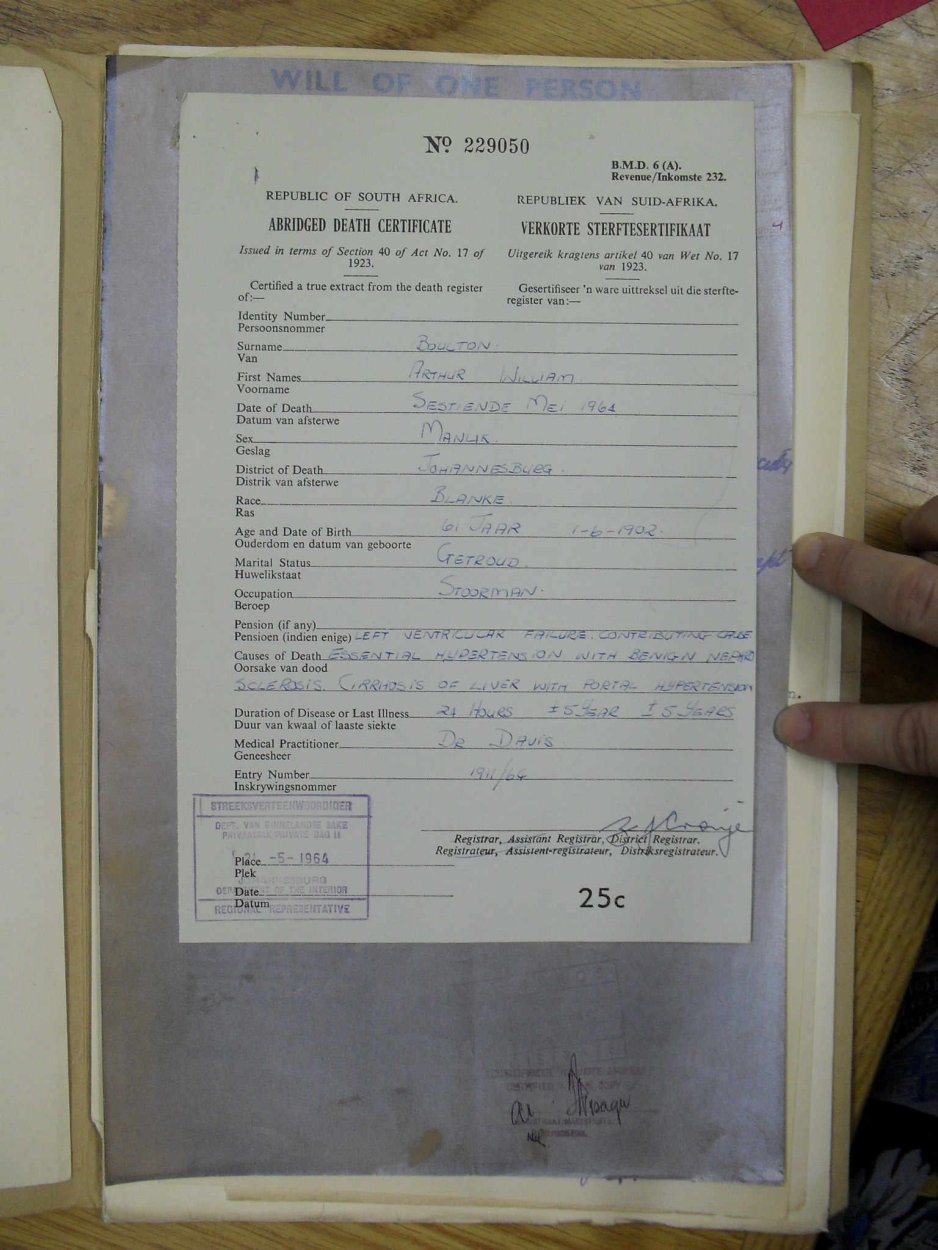 WILL OF ONE PERSON
Nº 229050
B.M.D. 6 (A).
Revenue/Inkomste 232.
REPUBLIC OF SOUTH AFRICA.
ABRIDGED DEATH CERTIFICATE
Issued in terms of Section 40 of Act No. 17 of
1923.
Certified a true extract from the death register
of:—
REPUBLIEK VAN SUID-AFRIKA.
VERKORTE STERFTESERTIFIKAAT
Uitgereik kragtens artikel 40 van Wet No. 17
van 1923.
Gesertifiseer 'n ware uittreksel uit die sterfte-
register van:—
Identity Number
Persoonsnommer
Surname BOULTON.
Van
First Names ARTHUR WILLIAM.
Voorname
Date of Death SESTIENDE MEI 1964
Datum van afsterwe
Sex MANLIK.
Geslag
District of Death JOHANNESBURG.
Distrik van afsterwe
Race BLANKE
Ras
Age and Date of Birth 61 JAAR 1-6-1902.
Ouderdom en datum van geboorte
Marital Status GETROUD.
Huwelikstaat
Occupation STOORMAN.
Beroep
Pension (if any)
Pensioen (indien enige) LEFT VENTRICULAR FAILURE. CONTRIBUTING
Causes of Death ESSENTIAL HYPERTENSION WITH BENIGN NEPHRO
Oorsake van dood
SCLEROSIS. CIRRHOSIS OF LIVER WITH PORTAL HYPERTENSION
Duration of Disease or Last Illness 24 HOURS ±5 YEAR ±5 YEARS
Duur van kwaal of laaste siekte
Medical Practitioner DR DAVIS.
Geneesheer
Entry Number
Inskrywingsnommer
STREEKSVERTEENWOORDIGER
DEPT. VAN BINNELANDSE SAKE
PRIVAATSAK/PRIVATE BAG 11
Place 21 -5-1964
Plek
JOHANNESBURG
DEPARTMENT OF THE INTERIOR
Date
Datum
REGIONAL REPRESENTATIVE
Registrar, Assistant Registrar, District Registrar.
Registrateur, Assistent-registrateur, Distriksregistrateur.
25c